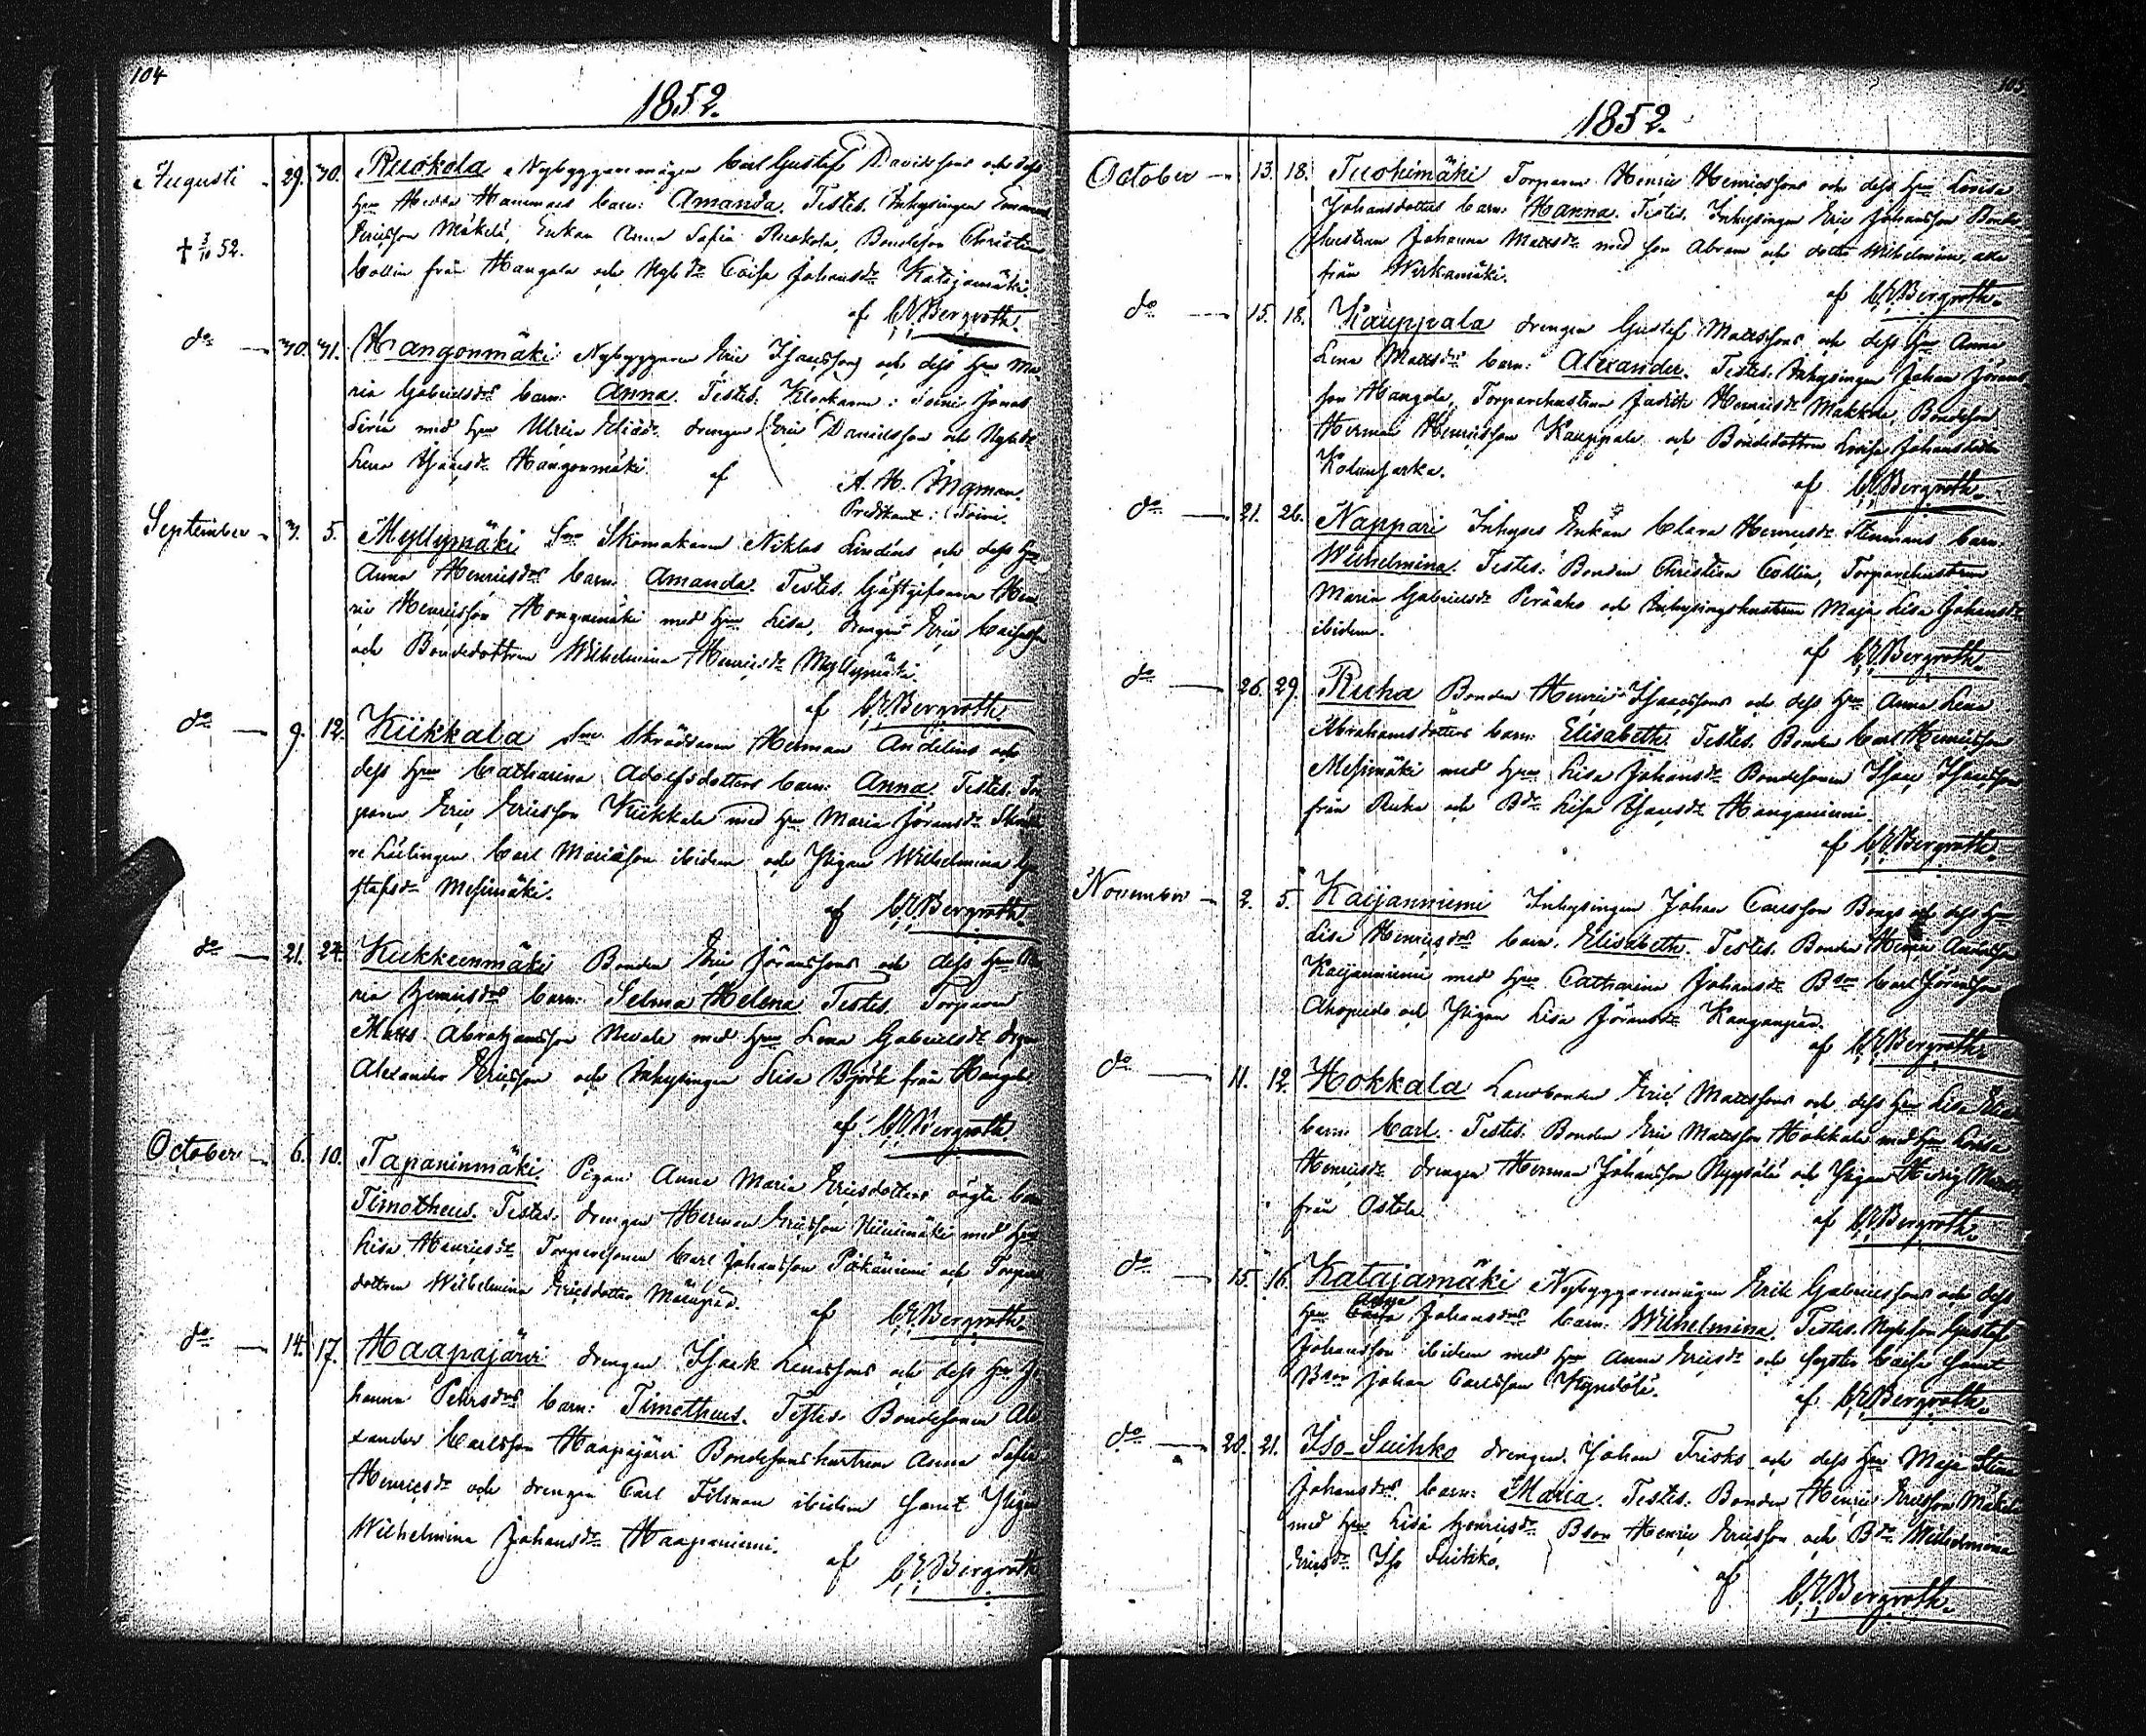 104
1852.
Augusti 29. 30. Ruokola Nybyggaremågen Carl Gustaf Davidssons och dess
Hru Hedda Hammars barn: Amanda. Testes. Inhysingen Emanuel
Ericsson Mäkelä, Enkan Anna Sofia Ruokola, Bondeson Christian
† 3/10 52.
Collin från Hangala och Nybdr Caisa Johansdr Katajamäki.
af C.E. Bergroth.
do 30. 31. Hangonmäki Nybyggaren Eric Isacssons och dess Hru Ma-
ria Gabrielsdrs barn: Anna. Testes. Klockaren i Soini Jonas
Sirén med Hru Ulrica Eliedr. drengen Eric Danielsson och Nybdr
Lena Isacsdr Hangonmäki
af A. H. Ingman.
Predikant i Soini.
September 3. 5. Myllymäki Sne Skomakaren Niklas Lindéns och dess Hru
Anna Henricsdrs barn: Amanda. Testes. Gästgifvaren Hen-
ric Henricsson Hongamäki med Hru Lisa, drengen Eric
och Bondedottren Wilhelmina Henricsdr Myllymäki.
af C.E. Bergroth.
do 9. 12. Kiikkala Sne Skräddaren Herman Andelins och
dess Hru Catharina Adolfsdotters barn: Anna. Testes. Tor-
paren Eric Ericsson Kiikkala med Hru Maria Jöransdr
Lärlingen Carl Mariason ibidem och Pigan Wilhelmina Gu-
stafsdr Mesimäki.
af C.E. Bergroth.
do 21. 24. Kukkeenmäki Bonden Eric Jöranssons och dess Hru Ma-
ria Henricsdrs barn: Selma Helena Testes. Torparen
Matts Abrahamsson Nevala med Hru Lena Gabrielsdr drgn
Alexander Ericsson och Inhysingen Lisa Björk från Hangala
af C.E. Bergroth
October 6. 10. Tapaninmäki. Pigan Anna Maria Ericsdotters oägta barn
Timotheus. Testes. drengen Herman Ericsson Niinimäki med Hru
Lisa Henricsdr Torparesonen Carl Johansson Pitkäniemi och Torpare
dottren Wilhelmina Ericsdotter
af C.E. Bergroth.
do 14. 17. Haapajärvi drengen Isaak Lenassons och dess Hru Jo-
hanna Pehrsdrs barn: Timotheus. Testes Bondesonen Ale-
xander Carlsson Haapajärvi Bondesonshustrun Anna Sofia
Henricsdr och drengen Carl Filman ibidem samt Pigan
Wilhelmina Johansdr Haapaniemi.
af C.E. Bergroth
105
1852.
October 13. 18. Tuohimäki Torparen Henric Henricssons och dess Hru Lovisa
Johansdotters barn: Hanna. Testes. Inhysingen Eric Johansson Bonde-
hustrun Johanna Mattsdr med son Abram och dotter Wilhelmina, alla
från Wirkamäki.
af C.E. Bergroth.
do 15. 18. Kauppala drengen Gustaf Mattssons och dess Hru Anna
Lena Mattsdrs barn: Alexander. Testes. Inhysingen Johan Jörans-
son Hangala, Torparehustrun Judith Henricsdr Makkola, Bondeson
Herman Henricsson Kauppala och Bondedottren Lovisa Johansdotter
af C.E. Bergroth.
do 21. 26. Nappari Inhyses Enkan Clara Henricsdr Stenmans barn.
Wilhelmina. Testes: Bonden Christian Collin, Torparehustrun
Maria Gabrielsdr Peräaho och Inhysingshustrun Maja Lisa Johansdr
ibidem.
af C.E. Bergroth.
do 26. 29. Ruha Bonden Henric Isacssons och dess Hru Anna Lena
Abrahamsdotters barn: Elisabeth. Testes. Bonden Carl Henricsson
Mesimäki med Hru Lisa Johansdr Bondesonen Isac Isacsson
från Ruha och Bdr Lisa Isacsdr Hanganiemi.
af C.E. Bergroth.
November 2. 5. Kaijanniemi Inhysingen Johan Carlsson Bergs och dess Hru
Lisa Henricsdrs barn. Elisabeth. Testes. Bonden
Kaijanniemi med Hru Catharina Johansdr Bson Carl Jöransson
Ahopelto och Pigan Lisa Jöransdr Kangaspää.
af C.E. Bergroth.
do 11. 12. Hokkala Landbonden Eric Mattssons och dess Hru Lisa
barn. Carl. Testes. Bonden Eric Mattsson Hokkala med Hru Lovisa
Henricsdr drengen Herman Johansson och Pigan Hedvig
från Ostola.
af C.E. Bergroth.
do 15. 16. Katajamäki Nybyggaremågen Erik Gabrielssons och dess
Hru Anna Johansdrs barn: Wilhelmina. Testes. Nybson Gustaf
Johansson ibidem med Hru Anna Ericsdr och Syster Caisa samt
Bson Johan Carlsson
af C.E. Bergroth.
do 20. 21. Iso-Suihko drengen Johan Frisks och dess Hru Maja Stina
Johansdrs barn: Maria. Testes. Bonden Henric Ericsson Mäkelä
med Hru Lisa Henricsdr Bson Henric Ericsson och Bdr Wilhelmina
Ericsdr Iso Suihko.
af C.E. Bergroth.